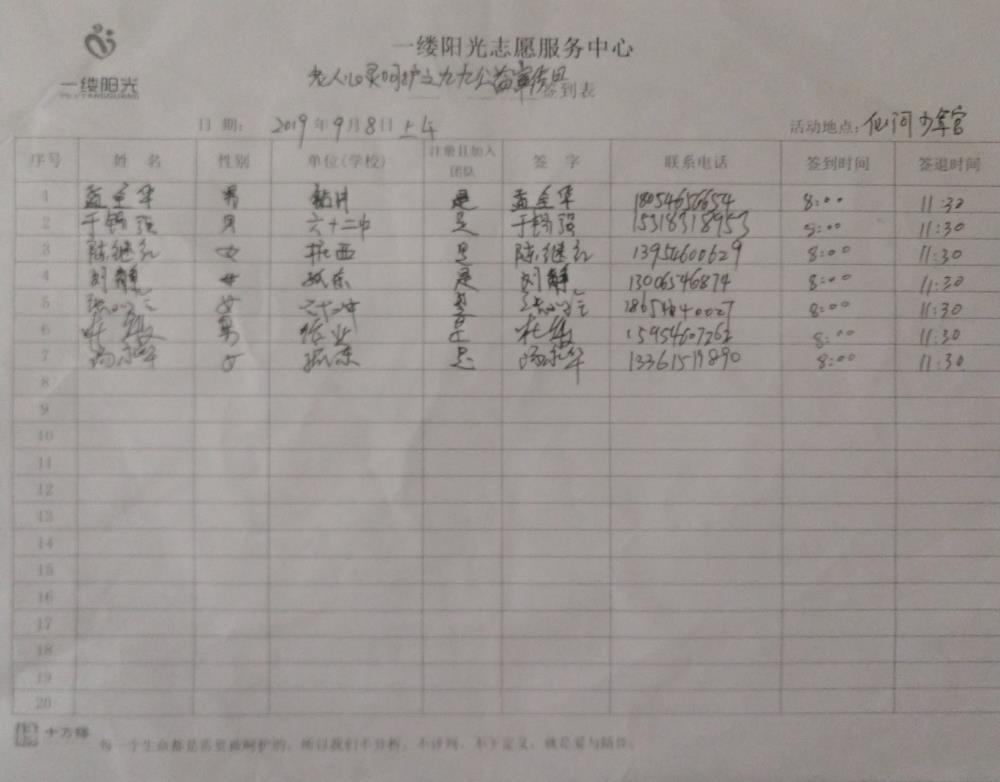 一缕阳光
YILYUYANGGUANG
一缕阳光志愿服务中心
老人心灵呵护之九九公益宣传日 签到表
日 期: 2019年9月8日上午 活动地点: 仙河少年宫
序号 姓 名 性别 单位(学校) 注册且加入团队 签 字 联系电话 签到时间 签退时间
1 孟全华 男 是 孟全华 18054656654 8:00 11:30
2 男 六十二中 是 15318318953 8:00 11:30
3 陈继红 女 桩西 是 陈继红 13954600629 8:00 11:30
4 刘静 女 孤东 是 刘静 13006546874 8:00 11:30
5 女 六十二中 是 8:00 11:30
6 杜敏 男 作业 是 杜敏 15954607262 8:00 11:30
7 女 孤东 是 8:00 11:30
8
9
10
11
12
13
14
15
16
17
18
19
20
十方缘 每一个生命都是需要被呵护的, 所以我们不分析、不评判、不下定义, 就是爱与陪伴。